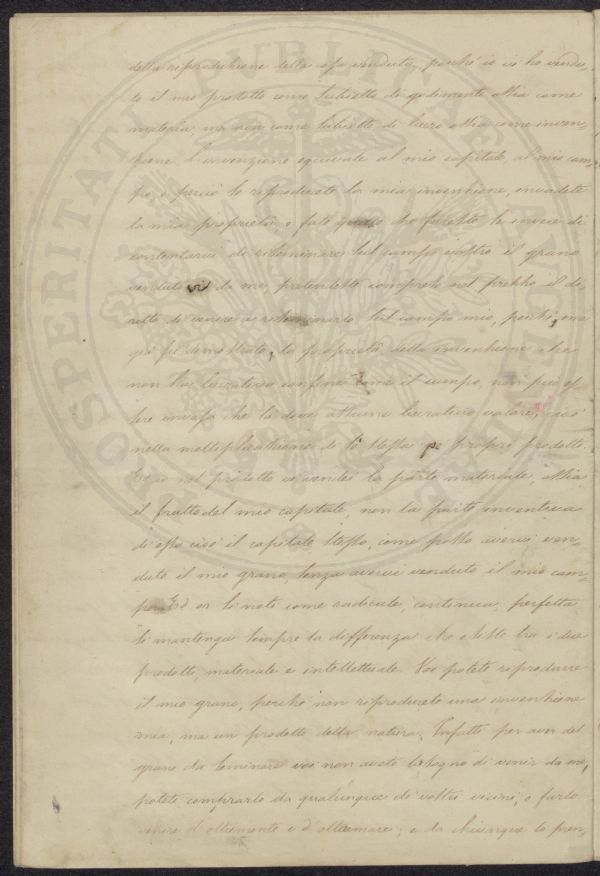 della riproduzione della cosa venduta; perchè io vi ho vendu-
to il mio prodotto come subietto di godimento ossia come
materia, ma non come subietto di lucro ossia come inven-
zione. L'invenzione equivale al mio capitale, al mio cam-
po; e perciò se riproducete la mia invenzione, invadete
la mia proprietà, e fate quello che fareste se invece di
contentarvi di riseminare sul campo vostro il grano
vendutovi da me, pretendeste compreso nel prezzo il di-
ritto di venire a riseminarlo sul campo mio, poichè, come
qui fu dimostrato, la proprietà della invenzione che
non ha lucrativo confine come il campo, non può es-
sere invasa che là dove assume lucrativo valore, cioè
nella moltiplicazione di sè stessa pe' proprj prodotti.
Ed io nel prodotto vi vendei la parte materiale, ossia
il frutto del mio capitale, non la parte inventiva
di esso cioè il capitale stesso, come posso avervi ven-
duto il mio grano, senza avervi venduto il mio cam-
po. Ed or si noti come radicale, continua, perfetta
si mantenga sempre la differenza che esiste tra i due
prodotti, materiale e intellettuale. Voi potete riprodurre
il mio grano, perchè non riproducete una invenzione
mia, ma un prodotto della natura. Infatti per aver del
grano da seminare voi non avete bisogno di venir da me,
potete comprarlo da qualunque de' vostri vicini, o farlo
venire d'oltremonte e d'oltremare; e da chiunque lo pren-
PROSPERITATI PUBLICAE